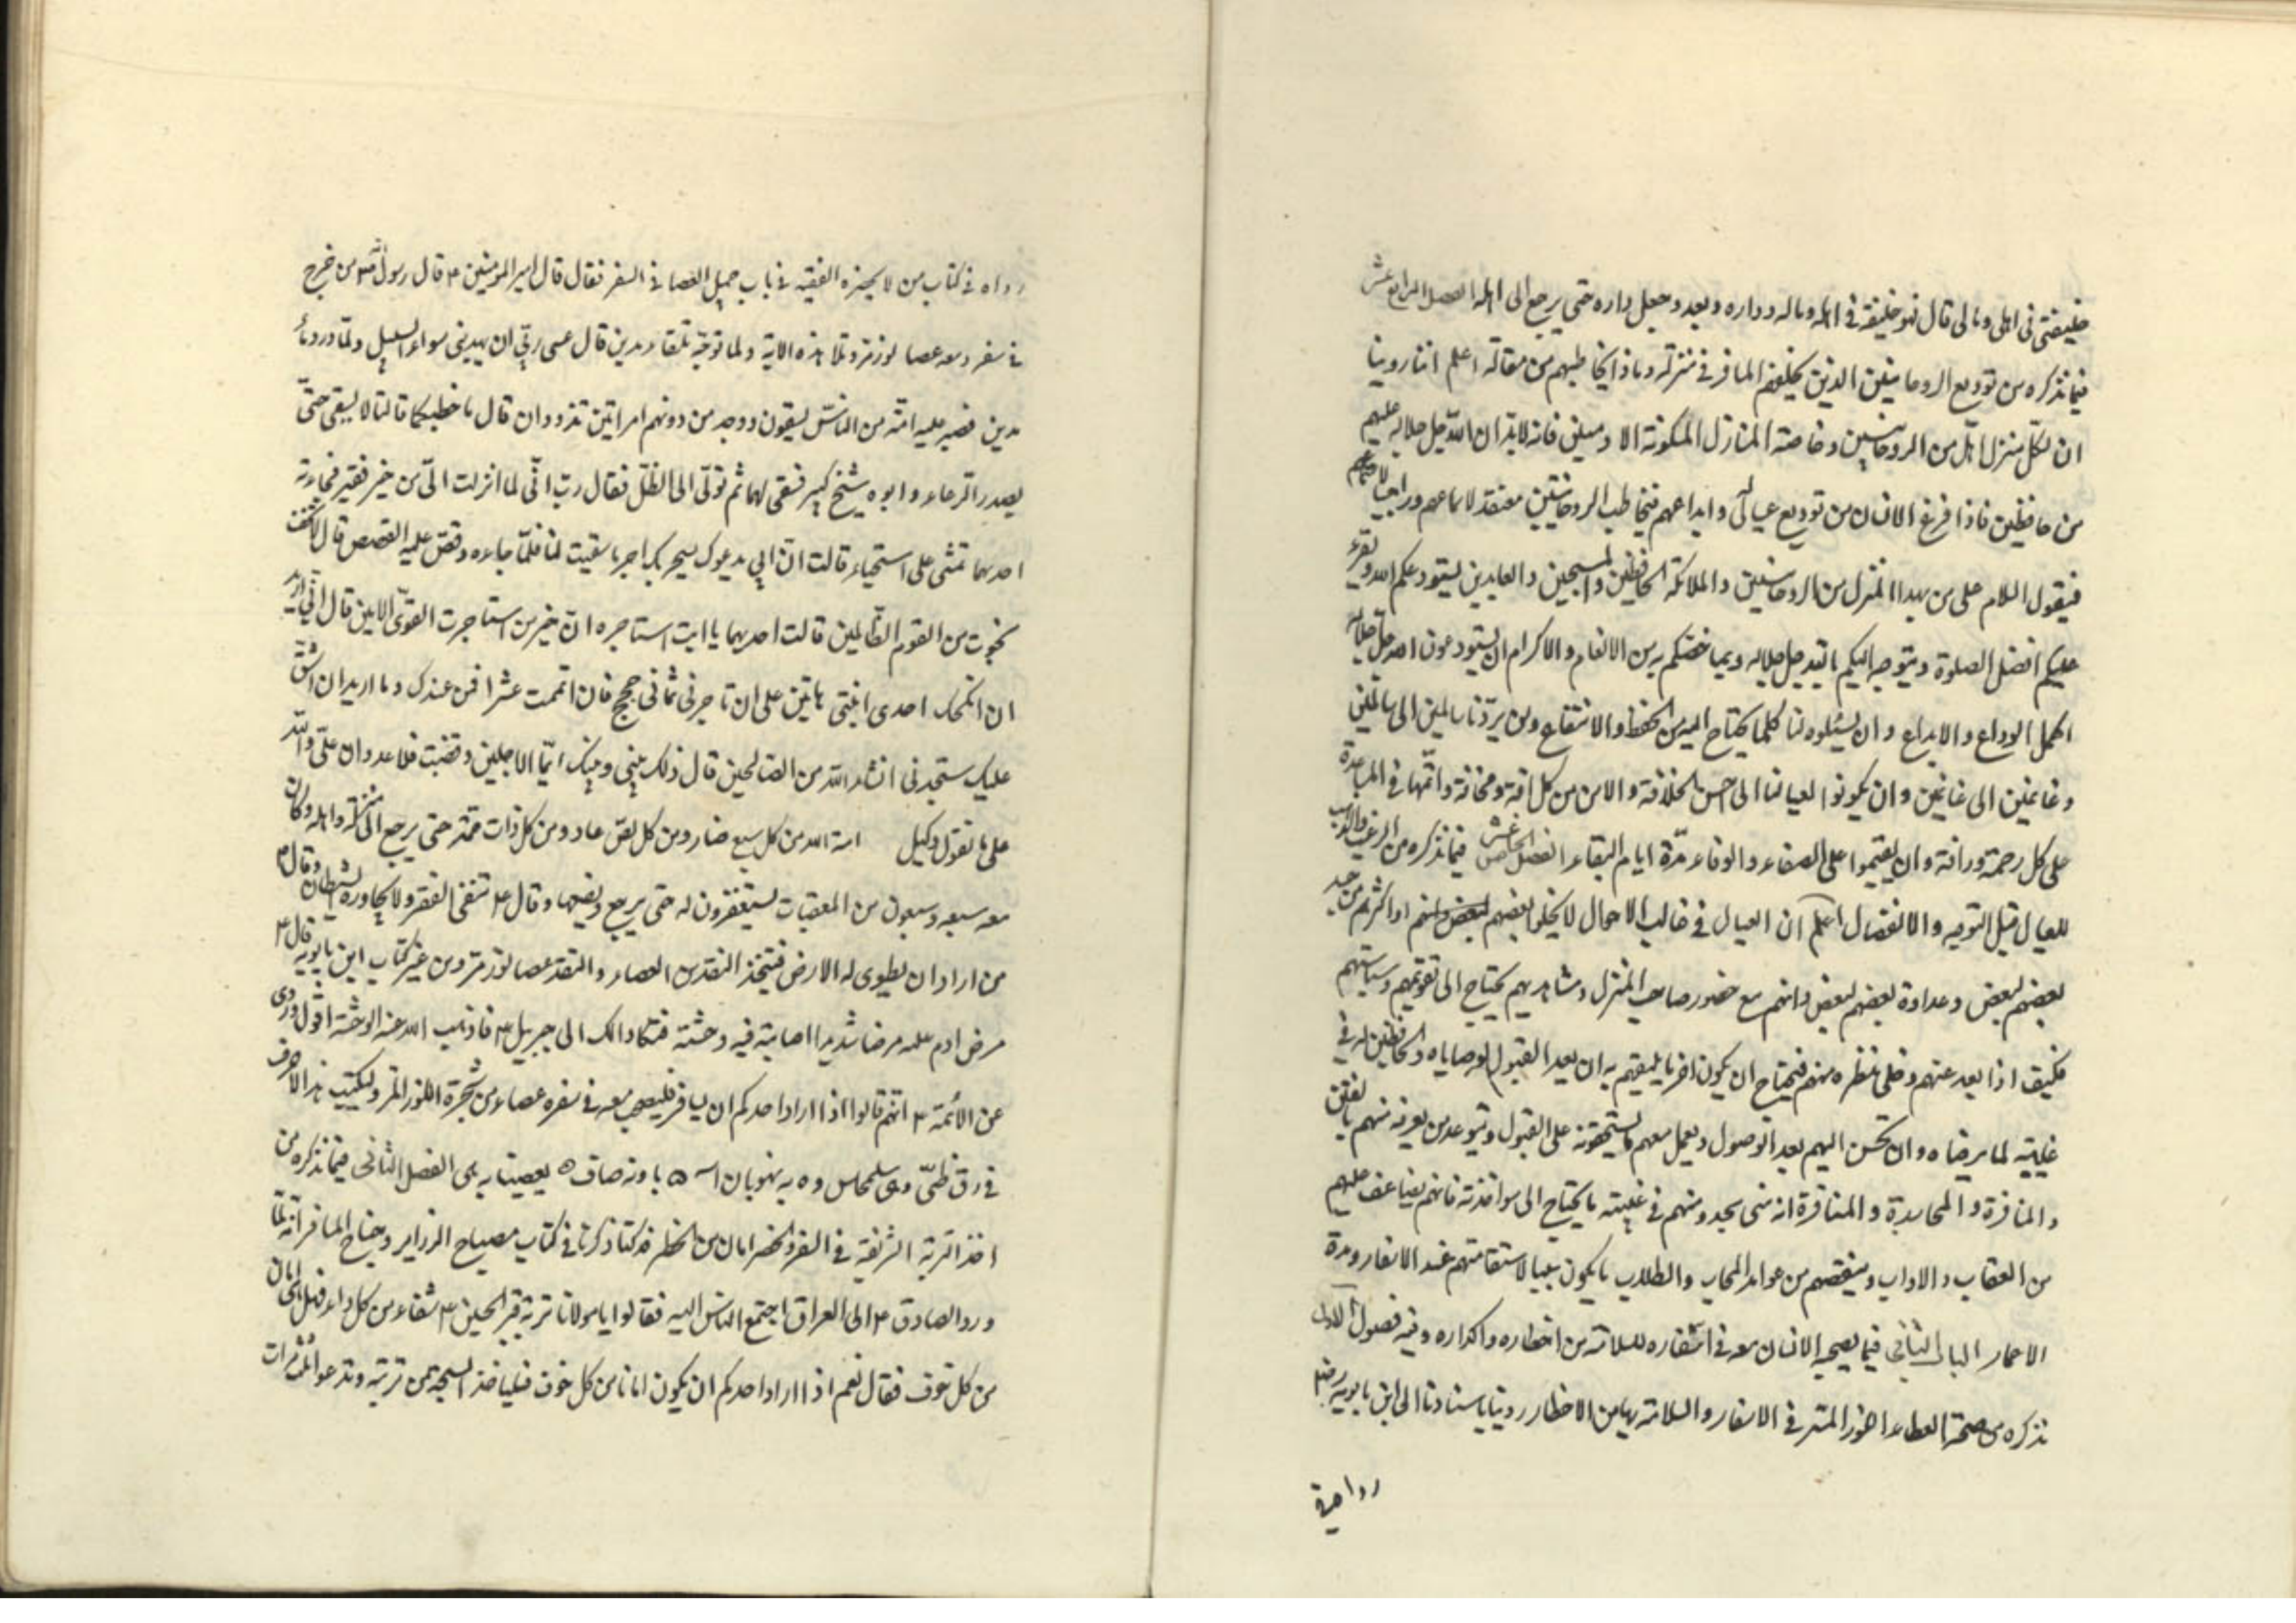 خليفتى فى اهلى ومالى قال فهو خليفته فى اهله وماله وداره وبعد وجعل داره حتى يرجع الى اهله الفصل الرابع عشر
فيما نذكره من توديع الروحانيين الذين يخلفهم المسافر فى منزله وماذا يخاطبهم من مقاله اعلم اننا روينا
ان لكل منزل اهل من الروحانيين وخاصة المنازل المسكونة الادميين فانه لابد ان الله جل جلاله عليهم
من حافظين فاذا فرغ الانسان من توديع عياله وايداعهم فيخاطب الروحانيين معتقد لاسماعهم وراجيا
فيقول السلام على من بهذا المنزل من الروحانيين والملائكة الحافظين والمسبحين والعابدين يستودعكم الله ويقرء
عليكم افضل الصلوة ويتوجه اليكم بالله جل جلاله وبما خصكم به من الانعام والاكرام ان يستودعون الله جل جلاله
اكمل الوداع والايداع وان يسئلوه لنا كلما يحتاج اليه من الحفظ والانتفاع ومن يردنا سالمين الى سالمين
وغانمين الى غانمين وان يكونوا لعيالنا الى احسن الخلافة والامن من كل افة ومخافة واتمها فى المساعدة
على كل رحمة ورافة وان يقيموا على الصفاء والوفاء مدة ايام البقاء الفصل الخامس عشر فيما نذكره من الترغيب والترهيب
للعيال قبل التوجه والانفصال اعلم ان العيال فى غالب الاحوال لا يخلوا بعضهم لبعض منهم او اكثرهم من حسد
بعضهم لبعض وعداوة بعضهم لبعض وانهم مع حضور صاحب المنزل ومشاهدتهم يحتاج الى تقويمهم وسياستهم
فكيف اذا بعد عنهم وخلى منظره منهم فيحتاج ان يكون اخر ما يلقيهم به ان بعد القبول لوصاياه والحافظين له فى
غيبته لما يرضاه وان تحسن اليهم بعد الوصول ويعمل معهم ما يستحقونه على القبول ويتوعد من يعرفه منهم بالنفاق
والمنافرة والمحاسدة والمنافرة انه متى يجد منهم فى غيبته ما يحتاج الى مواخذته فانهم يضاعف عليهم
من العقاب والاداب وينقصهم من عوائد المحاب والطلاب ما يكون سببا لاستقامتهم عند الاسفار ومدة
الاعمار الباب الثانى فيما يصحبه الانسان معه فى اسفاره للسلامة من اخطاره واكداره وفيه فصول الاول
نذكره من صحبة العصاء اللوز المر فى الاسفار والسلامة بها من الاخطار روينا باسنادنا الى ابن بابويه
رواه فى
رواه فى كتاب من لا يحضره الفقيه فى باب حمل العصا فى السفر فقال قال امير المؤمنين ع قال رسول الله ص من خرج
فى سفر ومعه عصا لوز مر وتلا هذه الاية ولما توجه تلقاء مدين قال عسى ربى ان يهدينى سواء السبيل ولما ورد ماء
مدين فصير عليه امة من الناس يسقون ووجد من دونهم امراتين تذودان قال ما خطبكما قالتا لا نسقى حتى
يصدر الرعاء وابونا شيخ كبير فسقى لهما ثم تولى الى الظل فقال رب انى لما انزلت الى من خير فقير فجاءته
احديهما تمشى على استحياء قالت ان ابى يدعوك ليجزيك اجر ما سقيت لنا فلما جاءه وقص عليه القصص قال لا تخف
نجوت من القوم الظالمين قالت احديهما يا ابت استاجره ان خير من استاجرت القوى الامين قال انى اريد
ان انكحك احدى ابنتى هاتين على ان تاجرنى ثمانى حجج فان اتممت عشرا فمن عندك وما اريد ان اشق
عليك ستجدنى انشاء الله من الصالحين قال ذلك بينى وبينك ايما الاجلين قضيت فلا عدوان على والله
على ما نقول وكيل امنه الله من كل سبع ضار ومن كل لص عاد ومن كل ذات حمة حتى يرجع الى منزله واهله وكان
معه سبعه وسبعون من المعقبات يستغفرون له حتى يرجع ويضعها وقال ع تنفى الفقر ولا يجاوره الشيطان وقال ع
من اراد ان يطوى له الارض فليتخذ النقد من العصاء والنقد عصا لوز مر ومن غير كتاب ابن بابويه قال ع
مرض ادم عليه مرضا شديدا اصابته فيه وحشة فشكا ذالك الى جبريل ع فاذهب الله عنه الوحشة اقول وروى
عن الائمة ع انهم قالوا اذا اراد احدكم ان يسافر فليصحب معه فى سفره عصاء من شجرة اللوز المر وليكتب هذه الاحرف
فى رق ظبى الفصل الثانى فيما نذكره من
اخذ التربة الشريفة فى السفر والحضر امان من الخطر قد كنا ذكرنا فى كتاب مصباح الزائر وجناح المسافر انه لما
ورد الصادق ع الى العراق اجتمع الناس اليه فقالوا يا مولانا تربة قبر الحسين ع شفاء من كل داء فهل هى امان
من كل خوف فقال نعم اذا اراد احدكم ان يكون امانا من كل خوف فليأخذ السبحة من تربته وتدعوا ثلث مرات